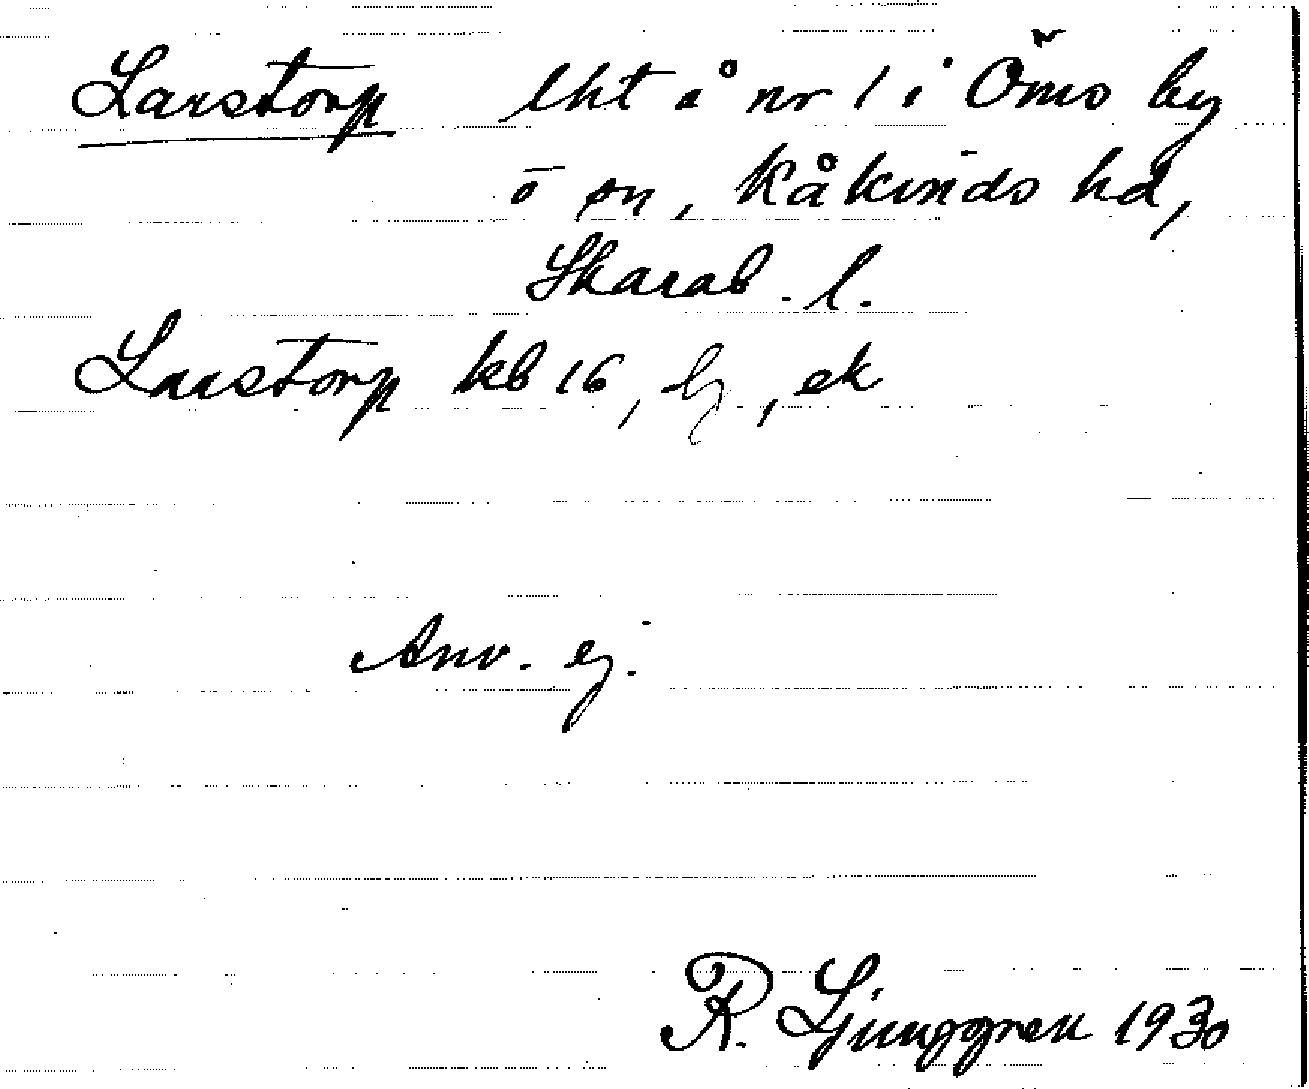 Larstorp lht å nr 1 i Öms by
ö sn, Kåkinds hd,
Skarab. l.
Larstorp kb 16, by, ek
Anv. ej.
R. Ljunggren 1930